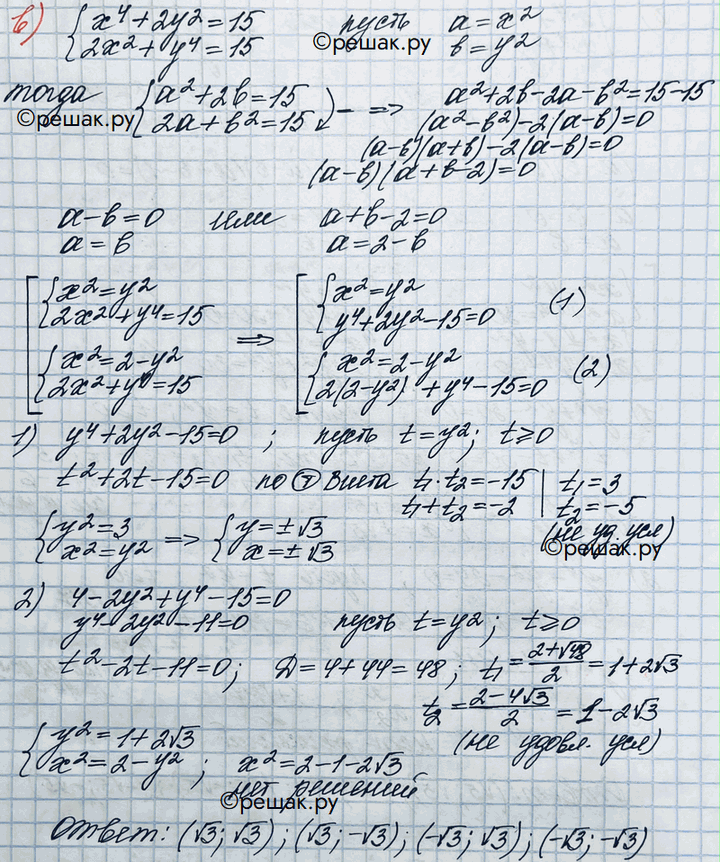 в) { x⁴+2y²=15 пусть a=x²
2x²+y⁴=15 ©решак.ру b=y²
тогда { a²+2b=15 ) - => a²+2b-2a-b²=15-15
©решак.ру 2a+b²=15 (a²-b²)-2(a-b)=0
(a-b)(a+b)-2(a-b)=0
(a-b)(a+b-2)=0
a-b=0 или a+b-2=0
a=b a=2-b
[ { x²=y² [ { x²=y² (1)
2x²+y⁴=15 => y⁴+2y²-15=0
{ x²=2-y² { x²=2-y² (2)
2x²+y⁴=15 2(2-y²)+y⁴-15=0
1) y⁴+2y²-15=0 ; пусть t=y²; t≥0
t²+2t-15=0 по Ⓣ Виета t₁·t₂=-15 | t₁=3
t₁+t₂=-2 | t₂=-5
(не уд. усл)
©решак.ру
{ y²=3 => { y=±√3
x²=y² x=±√3
2) 4-2y²+y⁴-15=0
y⁴-2y²-11=0 пусть t=y²; t≥0
t²-2t-11=0; D=4+44=48; t₁=(2+√48)/2=1+2√3
t₂=(2-4√3)/2=1-2√3
(не удовл. усл)
{ y²=1+2√3
x²=2-y² ; x²=2-1-2√3
нет решений
©решак.ру
Ответ: (√3; √3); (√3; -√3); (-√3; √3); (-√3; -√3)